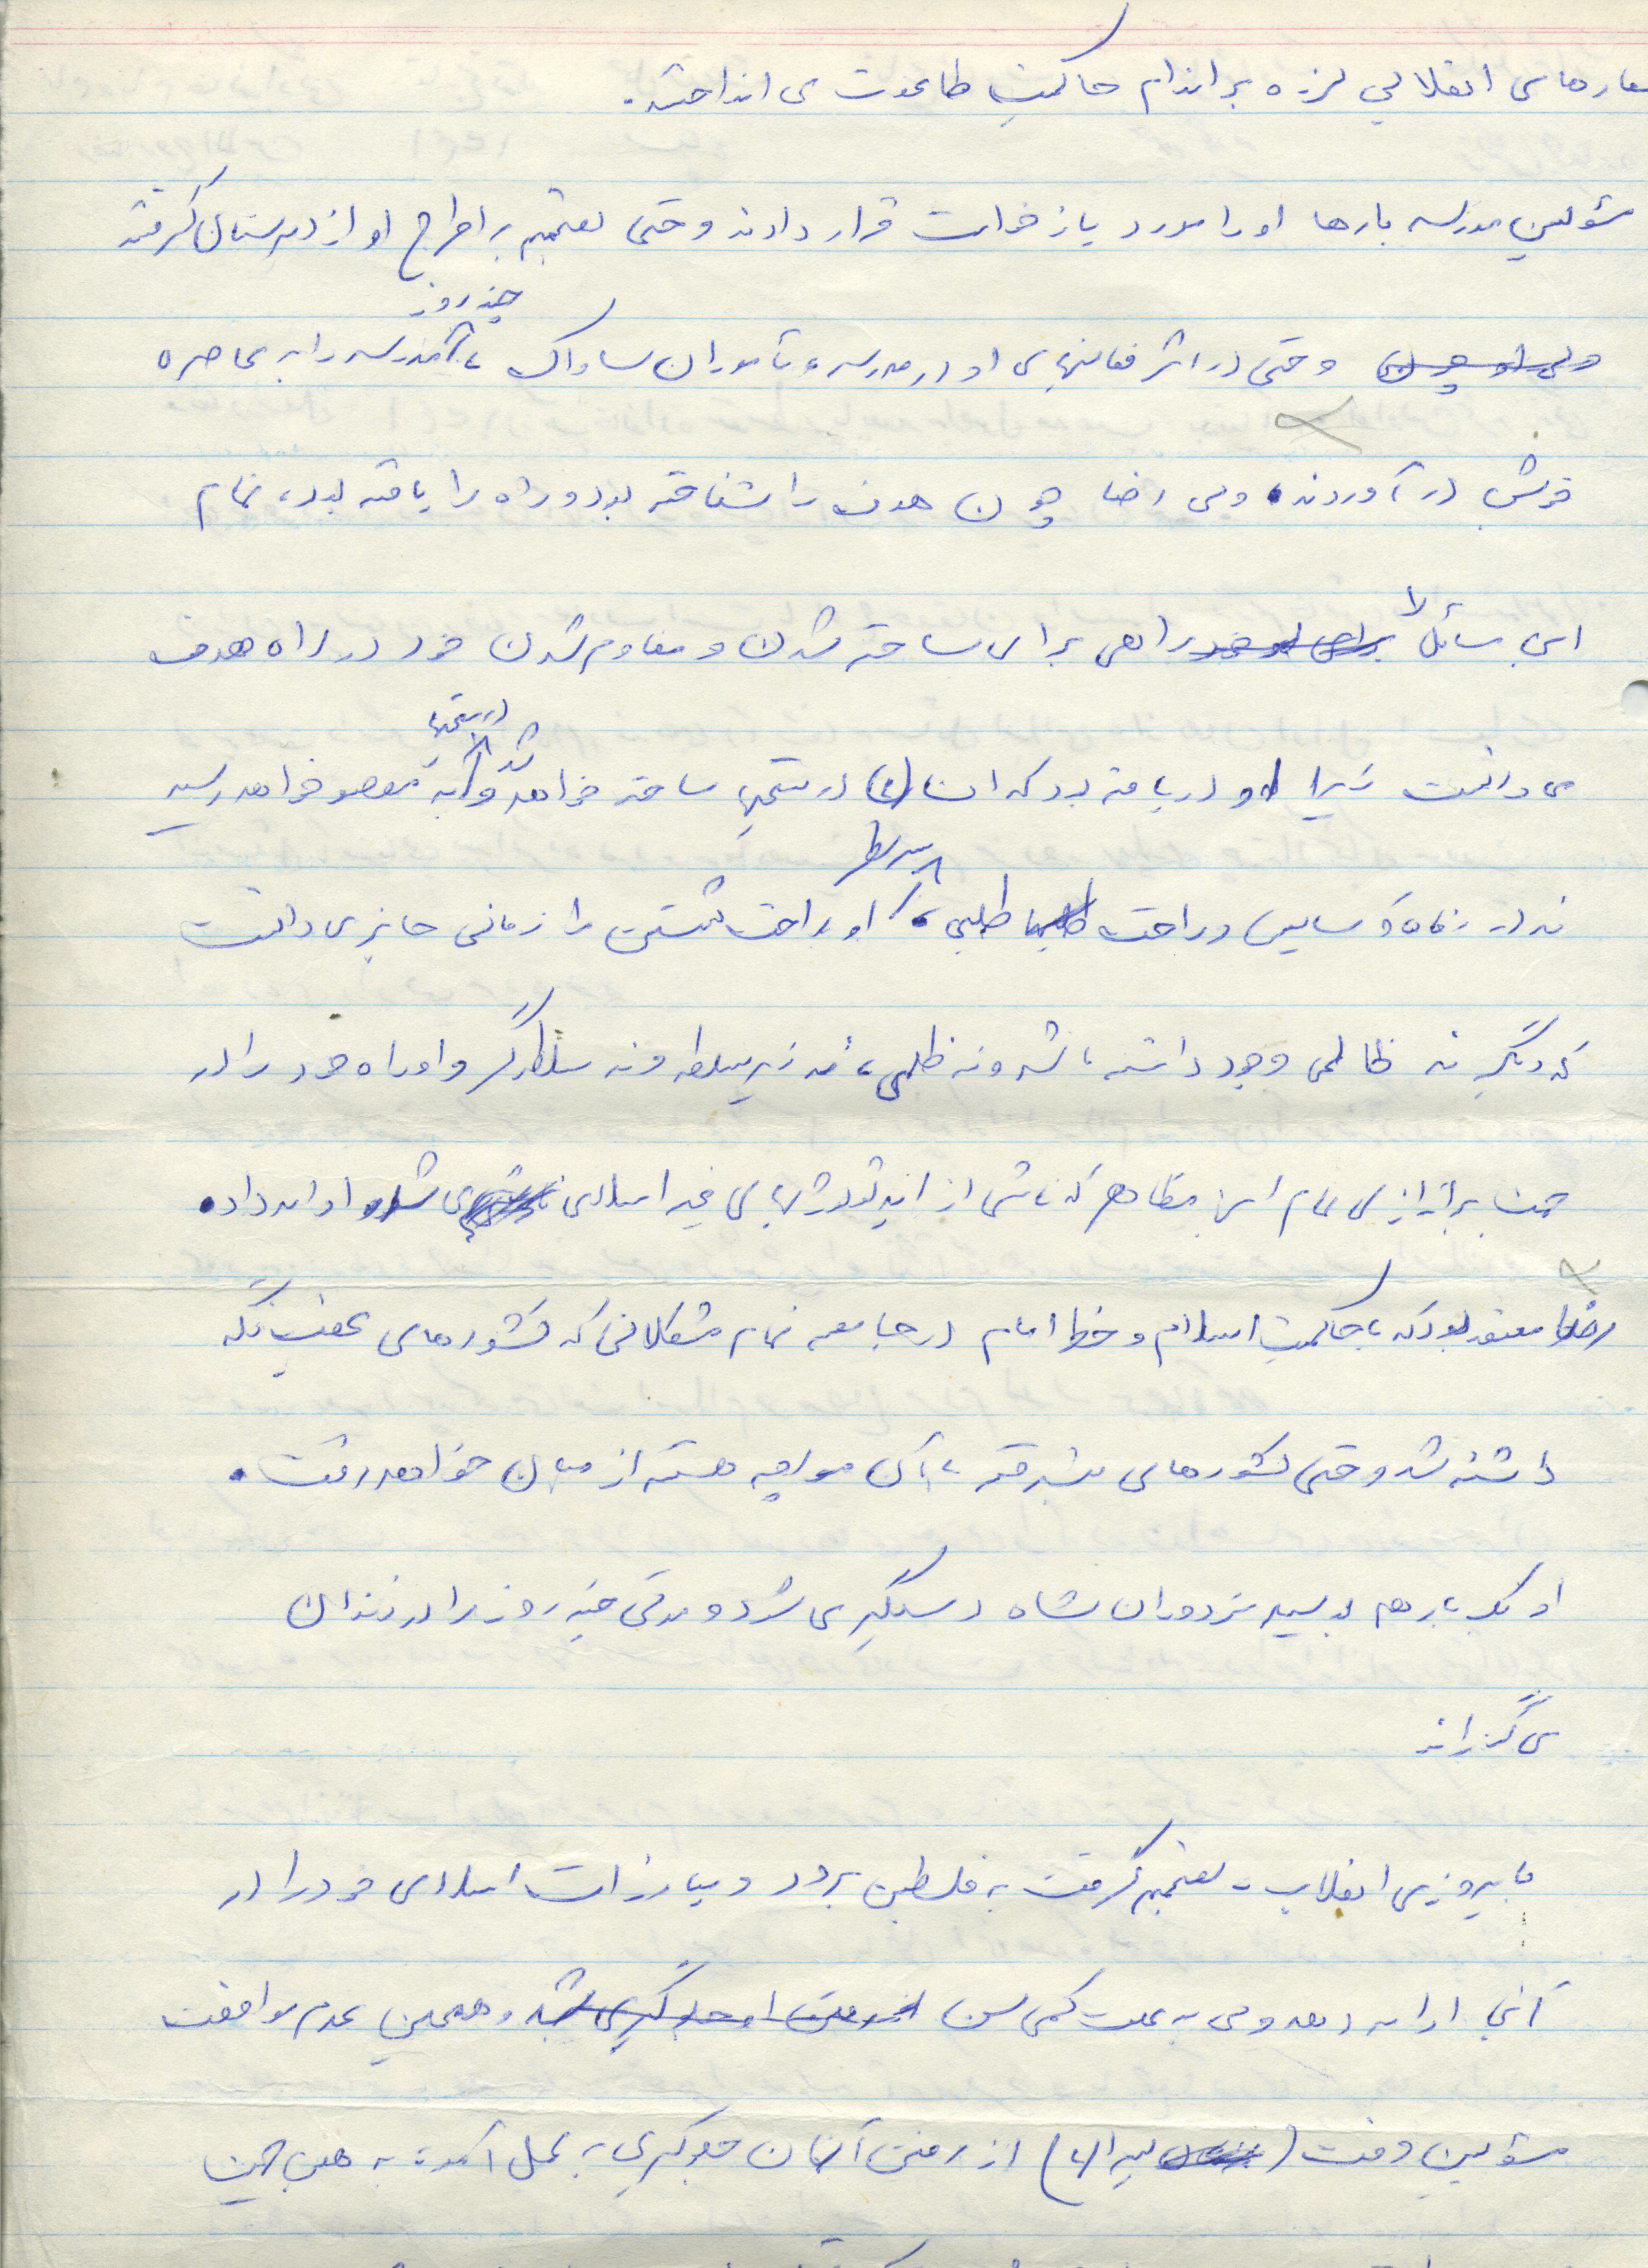 شعارهای انقلابی لرزه بر اندام حاکمیت طاغوت می انداختند.
مسئولین مدرسه بارها او را مورد بازخواست قرار دادند و حتی تصمیم به اخراج او از دبیرستان گرفتند
ولی او چون و حتی در اثر فعالیتهای او در مدرسه، مأموران ساواک، چند روز مدرسه را به محاصره
خویش در آوردند. ولی رضا چون هدف را شناخته بود و راه را یافته بود، تمام
این مسائل را راهی برای ساخته شدن و مقاوم شدن خود در راه هدف
می دانست زیرا او دریافته بود که انسان(ع) در سختیها ساخته خواهد شد و در سختیها به مقصود خواهد رسید
نه در رفاه و آسایش و راحت طلبی، او راحت نشستن را زمانی جایز می دانست
که دیگر نه ظالمی وجود داشته باشد و نه ظلمی، نه زیر سلطه و نه سلطه گر و او راه خود را در
جهت براندازی تمام این مظاهر که ناشی از ایدئولوژیهای غیر اسلامی می شد ادامه داد.
رضا معتقد بود که با حاکمیت اسلام و خط امام در جامعه تمام مشکلاتی که کشورهای عقب نگه
داشته شده و حتی کشورهای پیشرفته با آن مواجه هستند از میان خواهد رفت.
او یک بار هم بوسیله مزدوران شاه دستگیر می شود و مدتی چند روز را در زندان
می گذراند
با پیروزی انقلاب تصمیم گرفت به فلسطین برود و مبارزات اسلامی خود را در
آنجا ادامه دهد ولی به علت کمی سن از رفتن او جلوگیری شد و همچنین عدم موافقت
مسئولین وقت (لیبرالها) از رفتن آنان جلوگیری به عمل آمد. به همین جهت